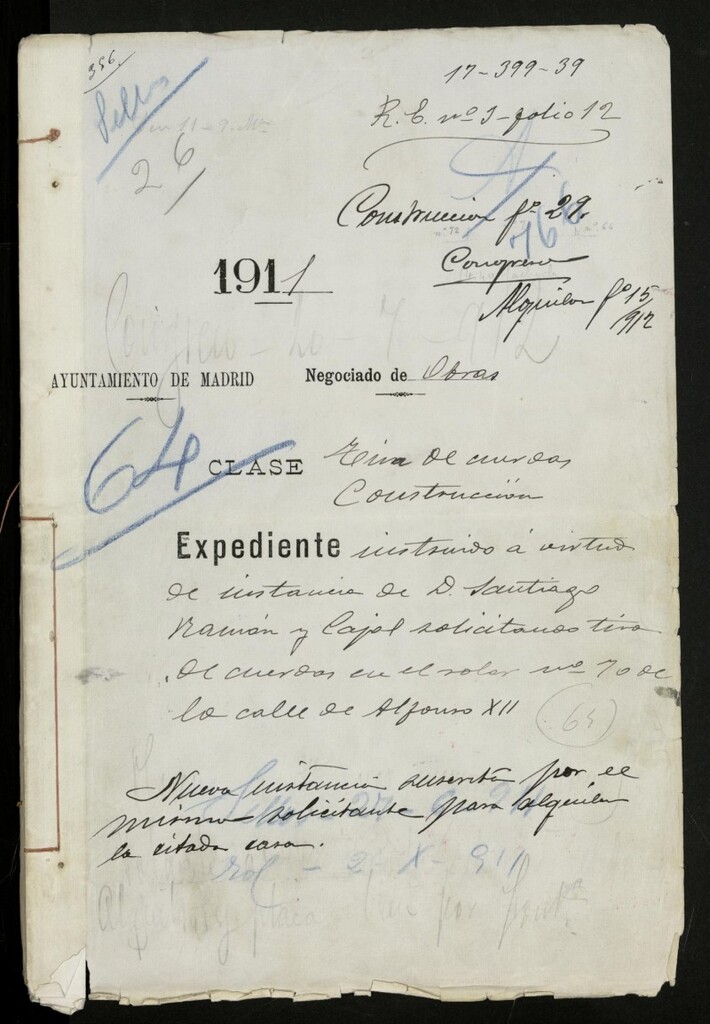 356.
17-399-39
Sellos
R. E. nº 3-folio 12
26
Construccion fº 29.
766
Congreso
1911
Alquilar fº 15/912
AYUNTAMIENTO DE MADRID Negociado de Obras
64
CLASE Tira de cuerdas
Construcción
Expediente instruido á virtud
de instancia de D. Santiago
Ramón y Cajal solicitando tira
de cuerdas en el solar nº 70 de
la calle de Alfonso XII
(64)
Nueva instancia suscrita por el
mismo solicitante para alquilar
la citada casa.
2-X-911